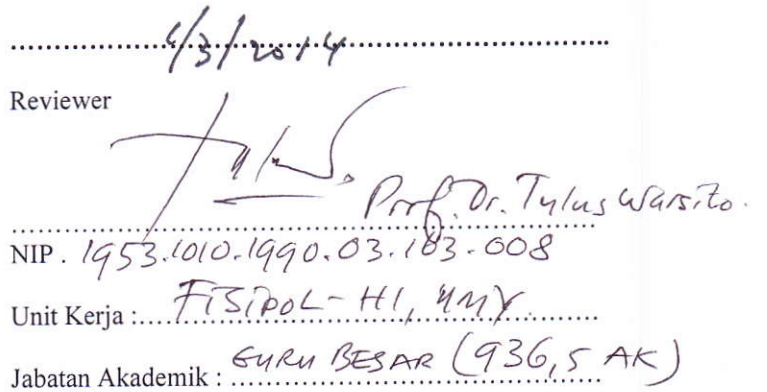 4/3/2014
Reviewer
Prof. Dr. Tulus Warsito.
NIP. 1953.1010.1990.03.163.008
Unit Kerja : FISIPOL - HI, UMY
Jabatan Akademik : GURU BESAR (936,5 AK)